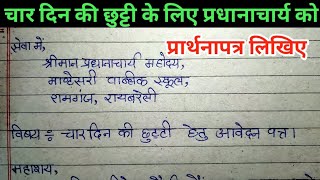 चार दिन की छुट्टी के लिए प्रधानाचार्य को
प्रार्थनापत्र लिखिए
सेवा में,
श्रीमान प्रधानाचार्य महोदय,
माण्टेसरी पाब्लिक स्कूल,
रामगंज, रायबरेली
विषय :- चार दिन की छुट्टी हेतु आवेदन पत्र।
महाशय,